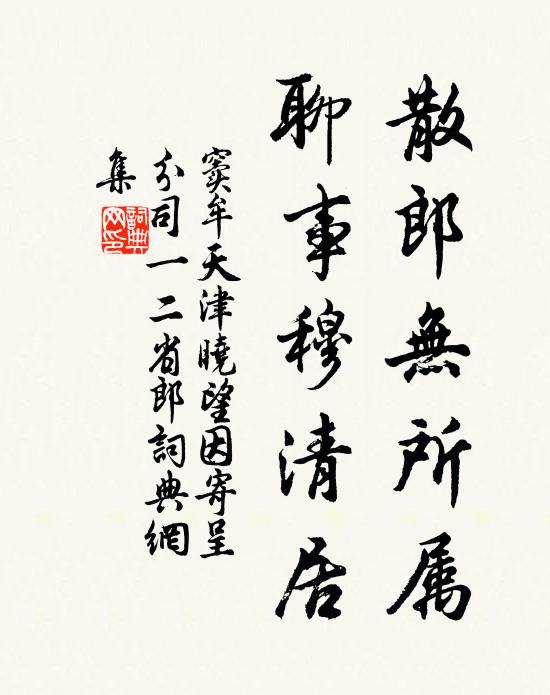 散郎無所属
聊事穆清居
竇牟天津曉望因寄呈
分司一二省郎詞典網
集
詞典网印